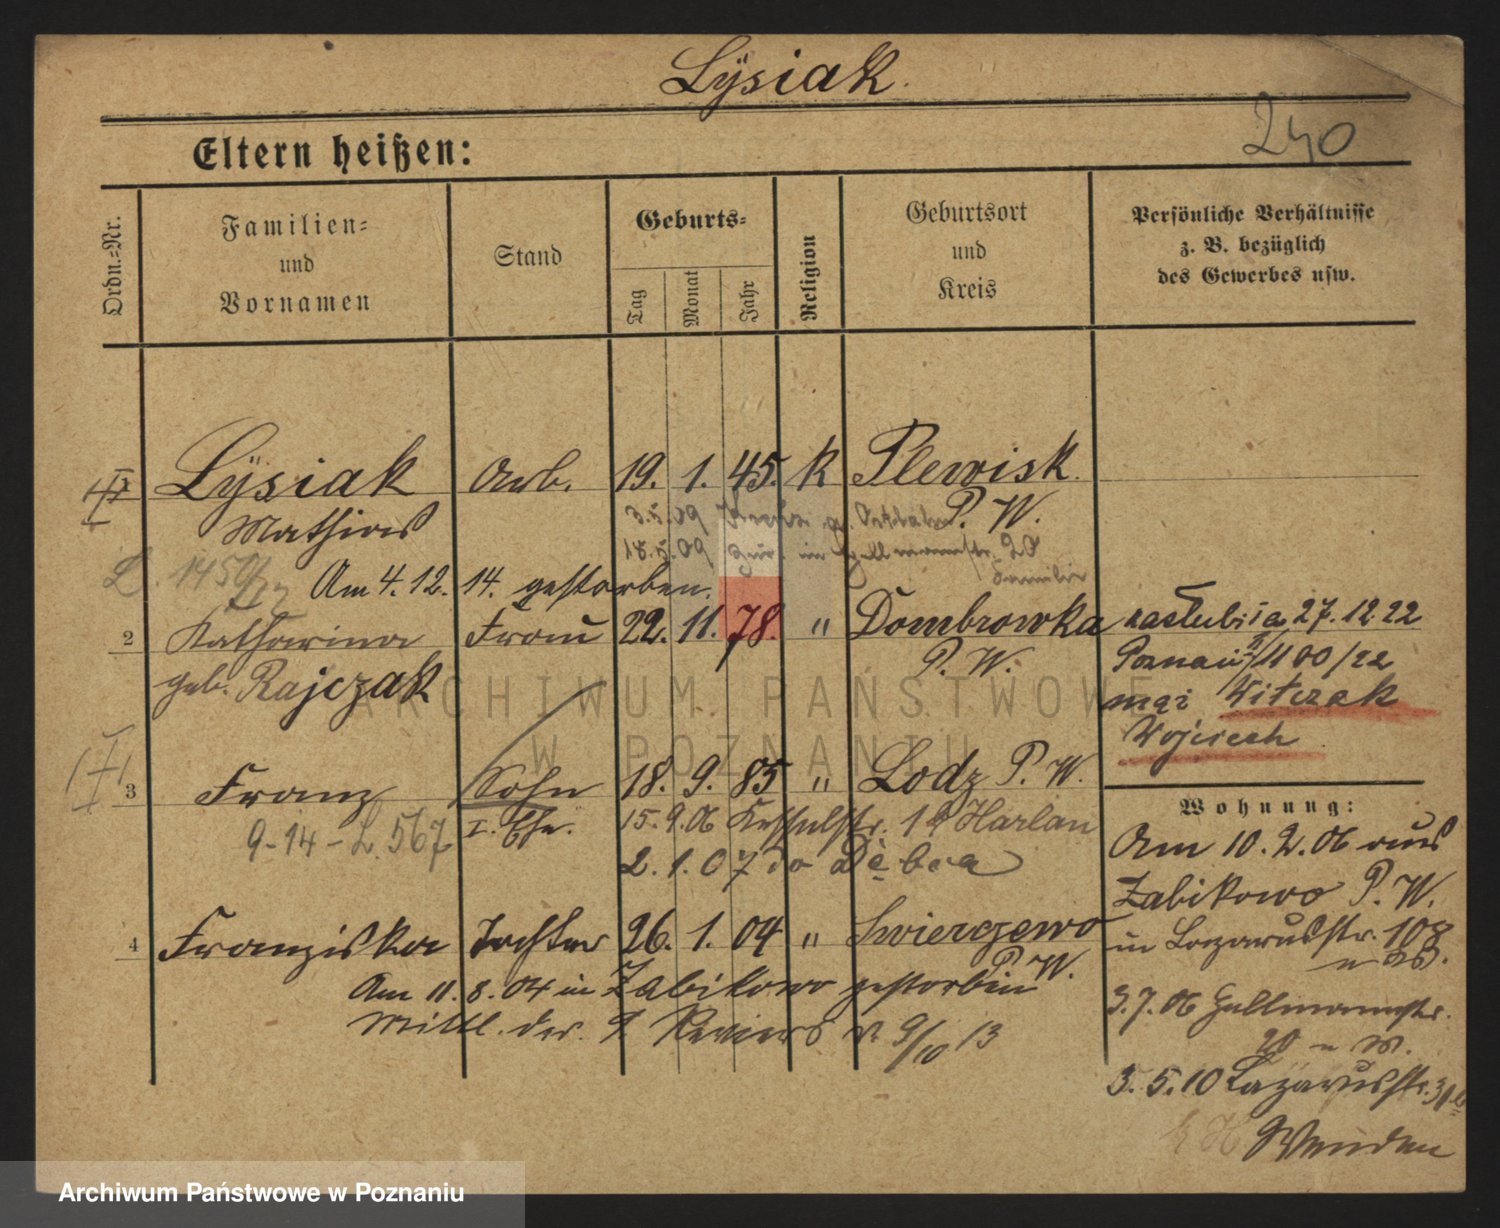 Lÿsiak.
240
Eltern heißen:
Ordn.=Nr.
Familien=
und
Vornamen
Stand
Geburts=
Tag
Monat
Jahr
Religion
Geburtsort
und
Kreis
Persönliche Verhältnisse
z. B. bezüglich
des Gewerbes usw.
1 Lÿsiak Arb. 19. 1. 45. k Plewisk
Mathias P. W.
3.5.09
18.5.09 20
Familie
L. 1450/22 Am 4. 12. 14. gestorben.
2 Katharina Frau 22. 11. 78. " Dombrowka
geb. Rajczak P. W.
zaślubiła 27. 12. 22
Poznań II/1100/22
mąż Witczak
Wojciech
3 Franz Sohn 18. 9. 85 " Lodz P. W.
I. Ehe. 15. 9. 06 19 Harlan
9-14-L. 567
2. 1. 07 do Dębca
4 Franziska Tochter 26. 1. 04 " Swierczewo
P. W.
Am 11. 8. 04 in Zabikowo gestorben
Mittl. des 9. Reviers v. 9/10 13
Wohnung:
Am 10. 2. 06 aus
Zabikowo P. W.
in Lazarusstr. 108
3. 7. 06 Hallmannstr.
20
3. 5. 10 Lazarusstr.
Wenden
ARCHIWUM PAŃSTWOWE
W POZNANIU
Archiwum Państwowe w Poznaniu